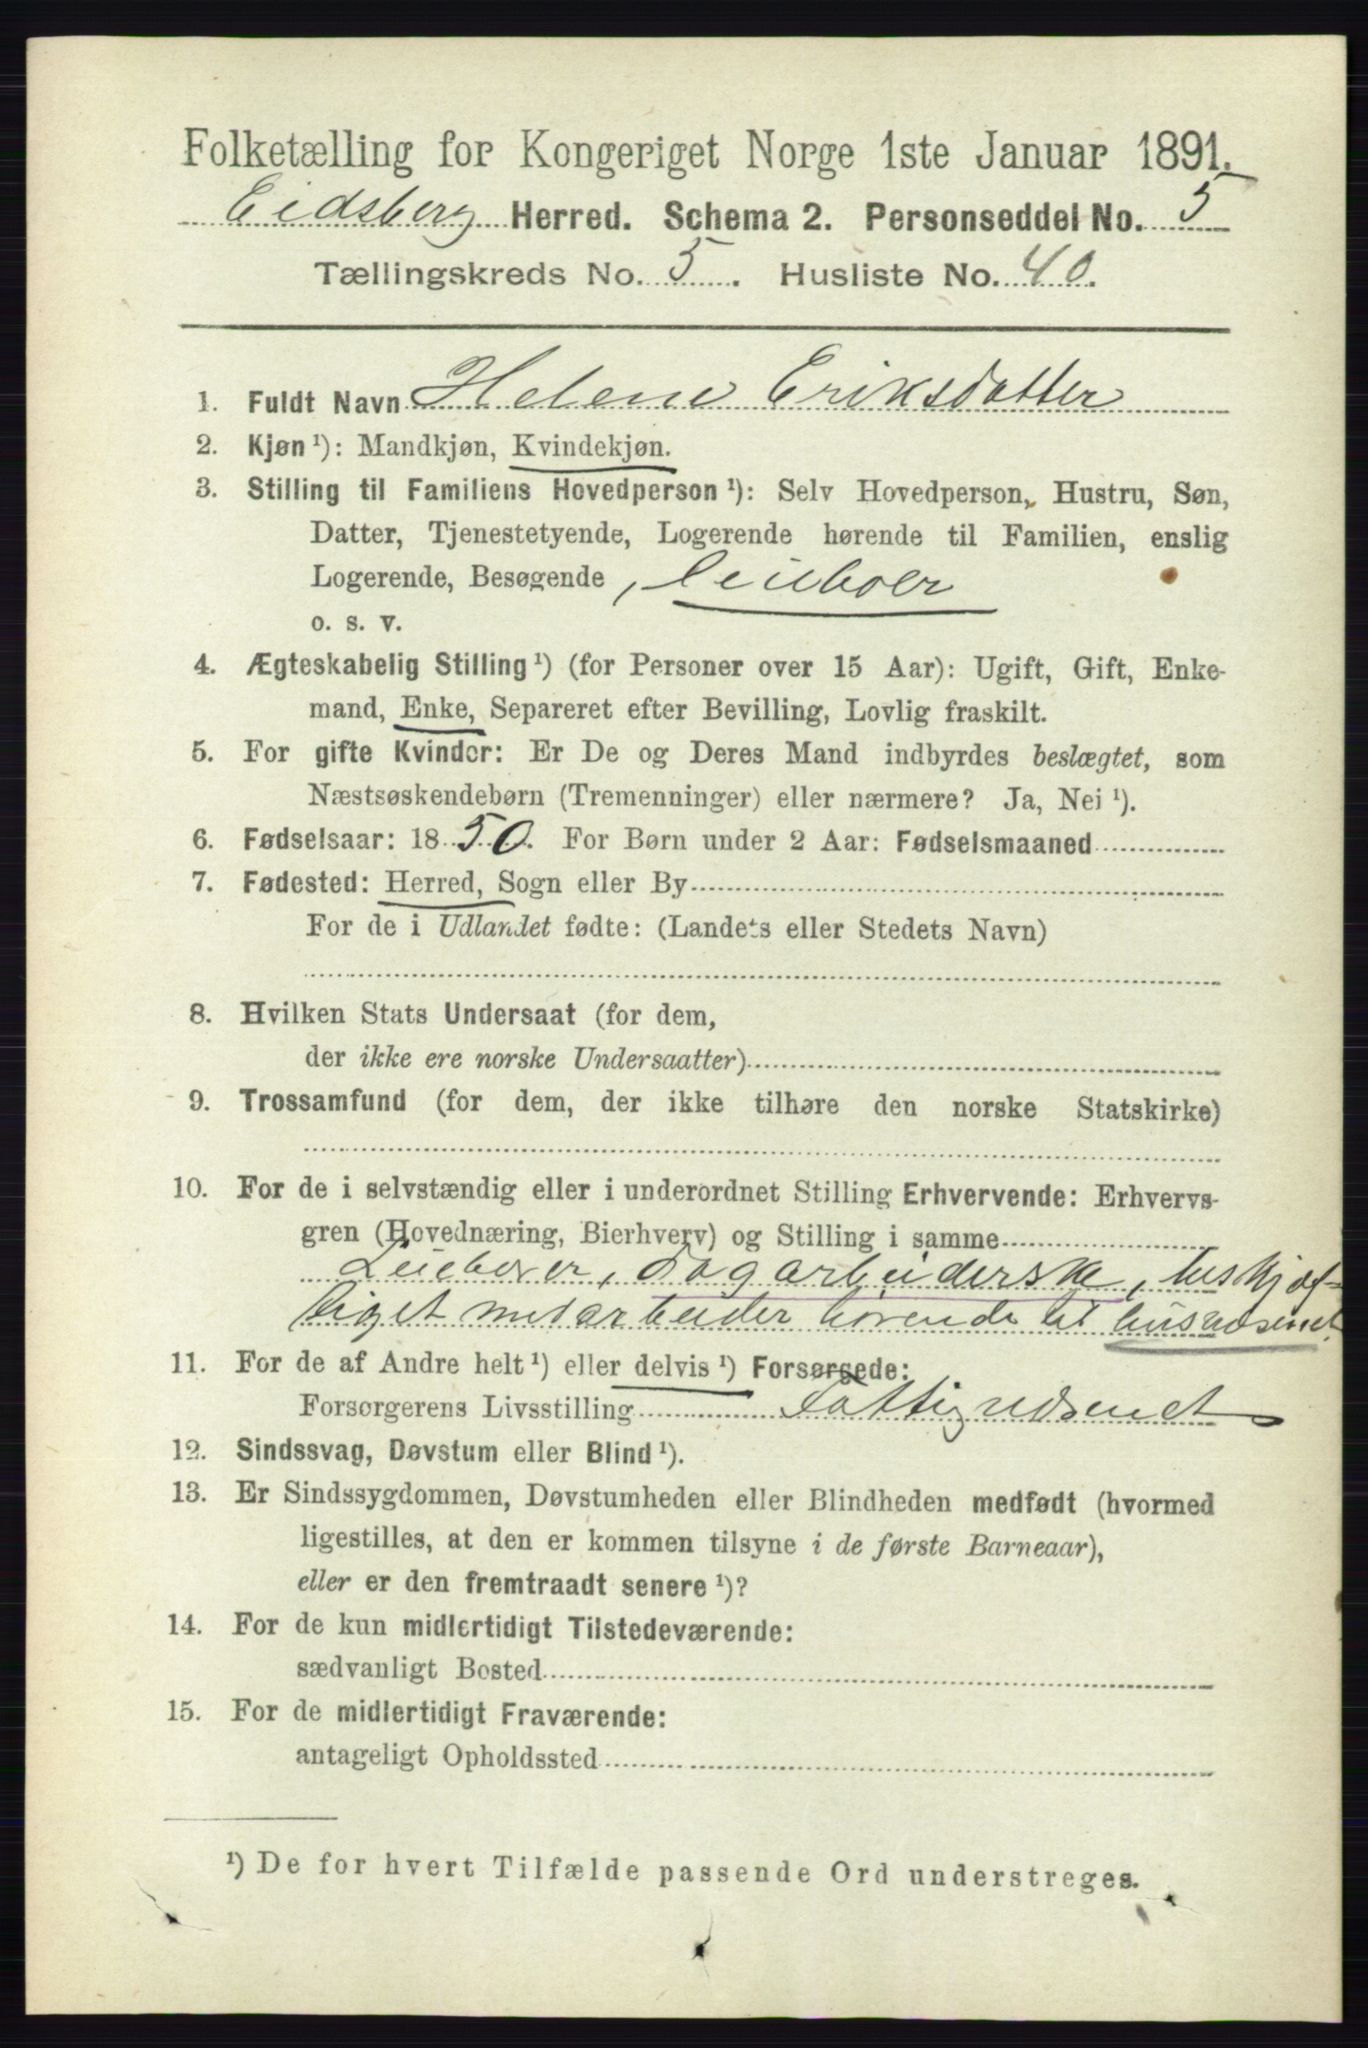 Folketælling for Kongeriget Norge 1ste Januar 1891.
Eidsberg Herred. Schema 2. Personseddel No. 5
Tællingskreds No. 5. Husliste No. 40.
1. Fuldt Navn Helene Eriksdatter
2. Kjøn¹): Mandkjøn, Kvindekjøn.
3. Stilling til Familiens Hovedperson¹): Selv Hovedperson, Hustru, Søn,
Datter, Tjenestetyende, Logerende hørende til Familien, enslig
Logerende, Besøgende, leieboer
o. s. v.
4. Ægteskabelig Stilling¹) (for Personer over 15 Aar): Ugift, Gift, Enke-
mand, Enke, Separeret efter Bevilling, Lovlig fraskilt.
5. For gifte Kvinder: Er De og Deres Mand indbyrdes beslægtet, som
Næstsøskendebørn (Tremenninger) eller nærmere? Ja, Nei¹).
6. Fødselsaar: 1850. For Børn under 2 Aar: Fødselsmaaned
7. Fødested: Herred, Sogn eller By
For de i Udlandet fødte: (Landets eller Stedets Navn)
8. Hvilken Stats Undersaat (for dem,
der ikke ere norske Undersaatter)
9. Trossamfund (for dem, der ikke tilhøre den norske Statskirke)
10. For de i selvstændig eller i underordnet Stilling Erhvervende: Erhvervs-
gren (Hovednæring, Bierhverv) og Stilling i samme
Leieboer, dagarbeiderske,
med arbeider hørende til husvæsenet
11. For de af Andre helt¹) eller delvis¹) Forsørgede:
Forsorgerens Livsstilling Fattigvæsenet
12. Sindssvag, Døvstum eller Blind¹).
13. Er Sindssygdommen, Døvstumheden eller Blindheden medfødt (hvormed
ligestilles, at den er kommen tilsyne i de første Barneaar),
eller er den fremtraadt senere¹)?
14. For de kun midlertidigt Tilstedeværende:
sædvanligt Bosted
15. For de midlertidigt Fraværende:
antageligt Opholdssted
¹) De for hvert Tilfælde passende Ord understreges.